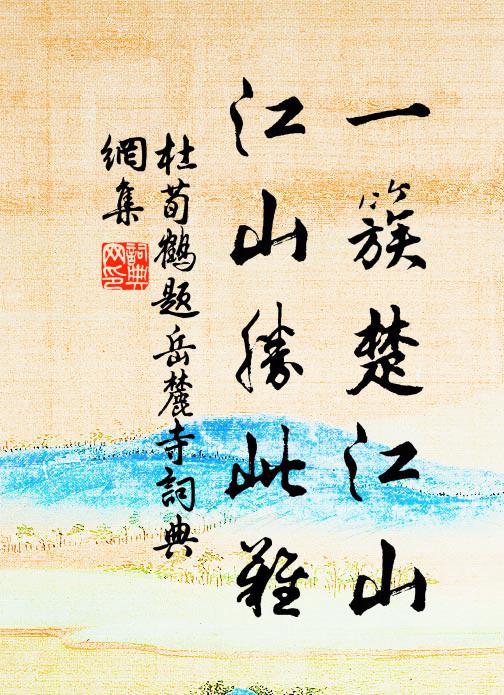 一簇楚江山
江山勝此難
杜荀鶴題岳麓寺詞典
網集
詞典
网印